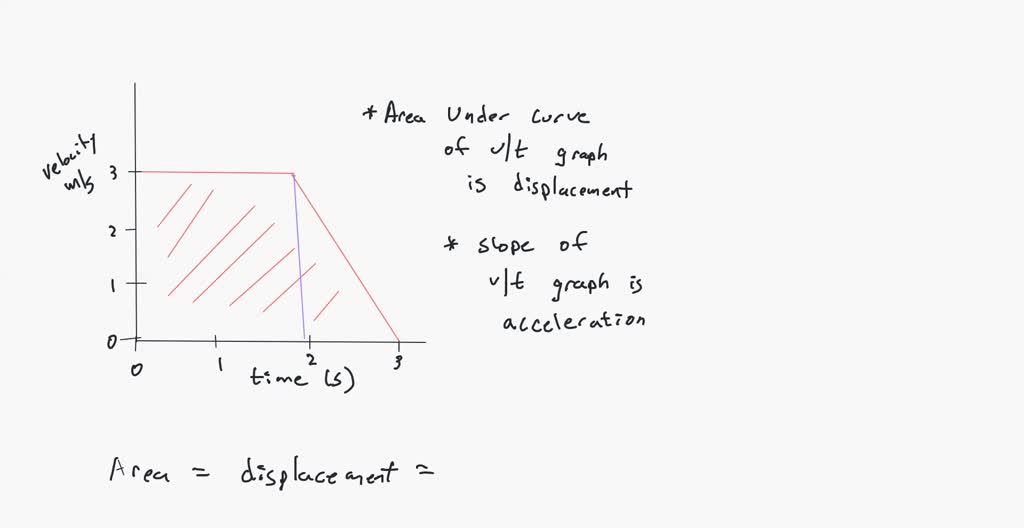 * Area Under curve
of v/t graph
is displacement
* slope of
v/t graph is
acceleration
velocity
m/s
3
2
1
0
0
1
2
3
time (s)
Area = displacement =